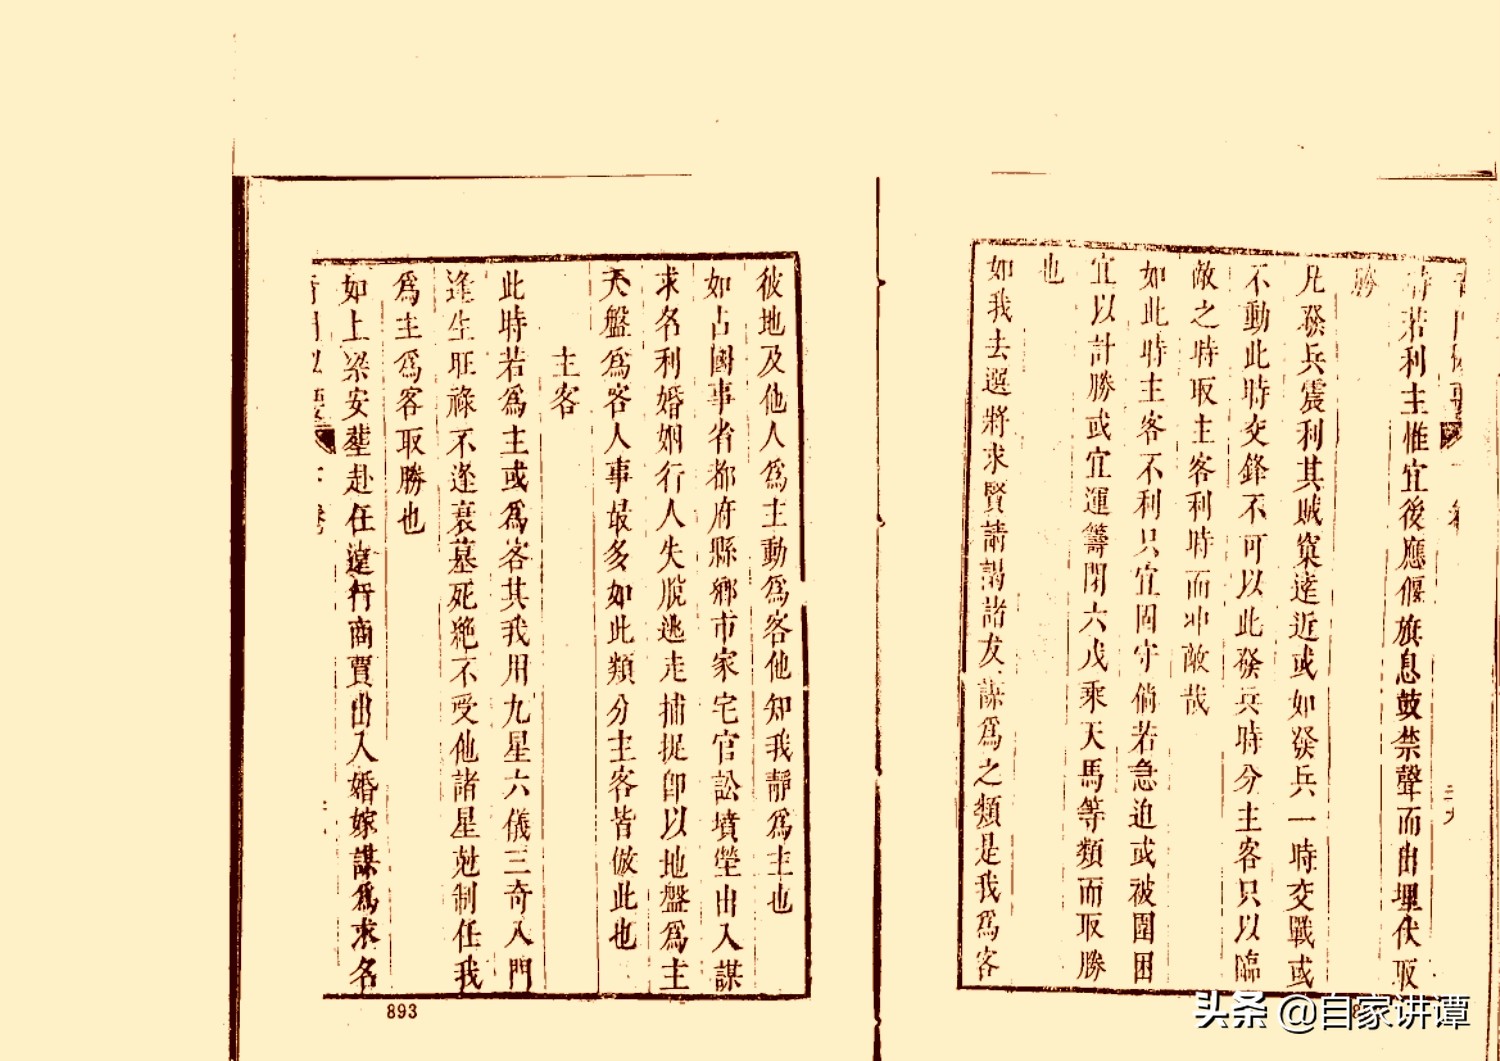 時若利主惟宜後應偃旗息鼓禁聲而出埋伏取
勝
凡發兵震利其賊窠達近或如發兵一時交戰或
不動此時交鋒不可以此發兵時分主客只以臨
敵之時取主客利時而冲敵哉
如此時主客不利只宜固守倘若急迫或被圍困
宜以計勝或宜運籌閉六戊乘天馬等類而取勝
也
如我去選將求賢請謁諸友謀爲之類是我爲客
彼地及他人爲主動爲客他知我靜爲主也
如占國事省都府縣鄉市家宅官訟墳塋出入謀
求名利婚姻行人失脫逃走捕捉即以地盤爲主
天盤爲客人事最多如此類分主客皆倣此也
主客
此時若爲主或爲客其我用九星六儀三奇入門
逢生旺祿不逢衰墓死絶不受他諸星尅制任我
爲主爲客取勝也
如上梁安塟赴任遠行商賈出入婚嫁謀爲求名
893
头条 @自家讲谭